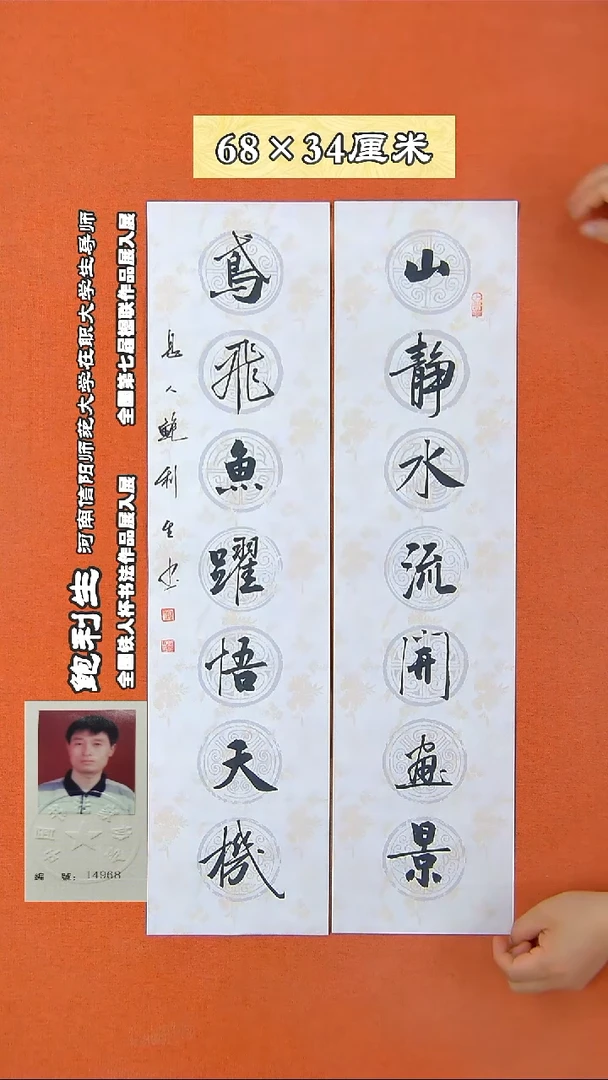 68×34厘米
山靜水流開畫景
鳶飛魚躍悟天機
息人鮑利生書
鲍利生 河南信阳师范大学在职大学生导师
全国第七届楹联作品展入展
全国铁人杯书法作品展入展
编 號：14968